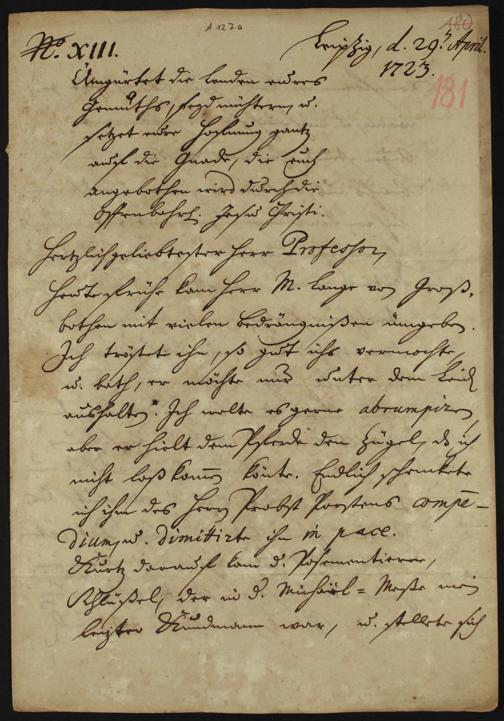 A 127a
180
No. XIII.
Leipzig, d. 29. April.
1723.
181
Umgürtet die lenden eures
Gemüths, seyd nüchtern, u.
setzet eure Hofnung gantz
auf die Gnade, die euch
angebothen wird durch die
Offenbahrl. Jesu Christi.
Hertzlichgeliebtester Herr Professor,
Heute frühe kam Herr M. Lange von Groß-
bothen mit vielen Bedrängnißen umgeben.
Ich tröstete ihn, so gut ichs vermochte,
u. bath, er möchte nur unter dem Leid
aushalten. Ich wolte es gerne abrumpiren,
aber er hielt dem Pferde den Zügel, daß ich
nicht loß komen könte. Endlich schenckete
ich ihm des Herrn Probst Porstens compen-
dium, u. dimittirte ihn in pace.
Kurtz darauf kam d. Posementierer,
Schlüßel, der in d. Michael-Meße mein
letzter Kundmann war, u. stellete sich